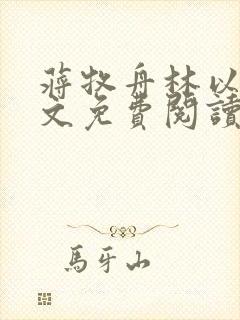 蔣牧舟林以
文免費閱讀
馬牙山